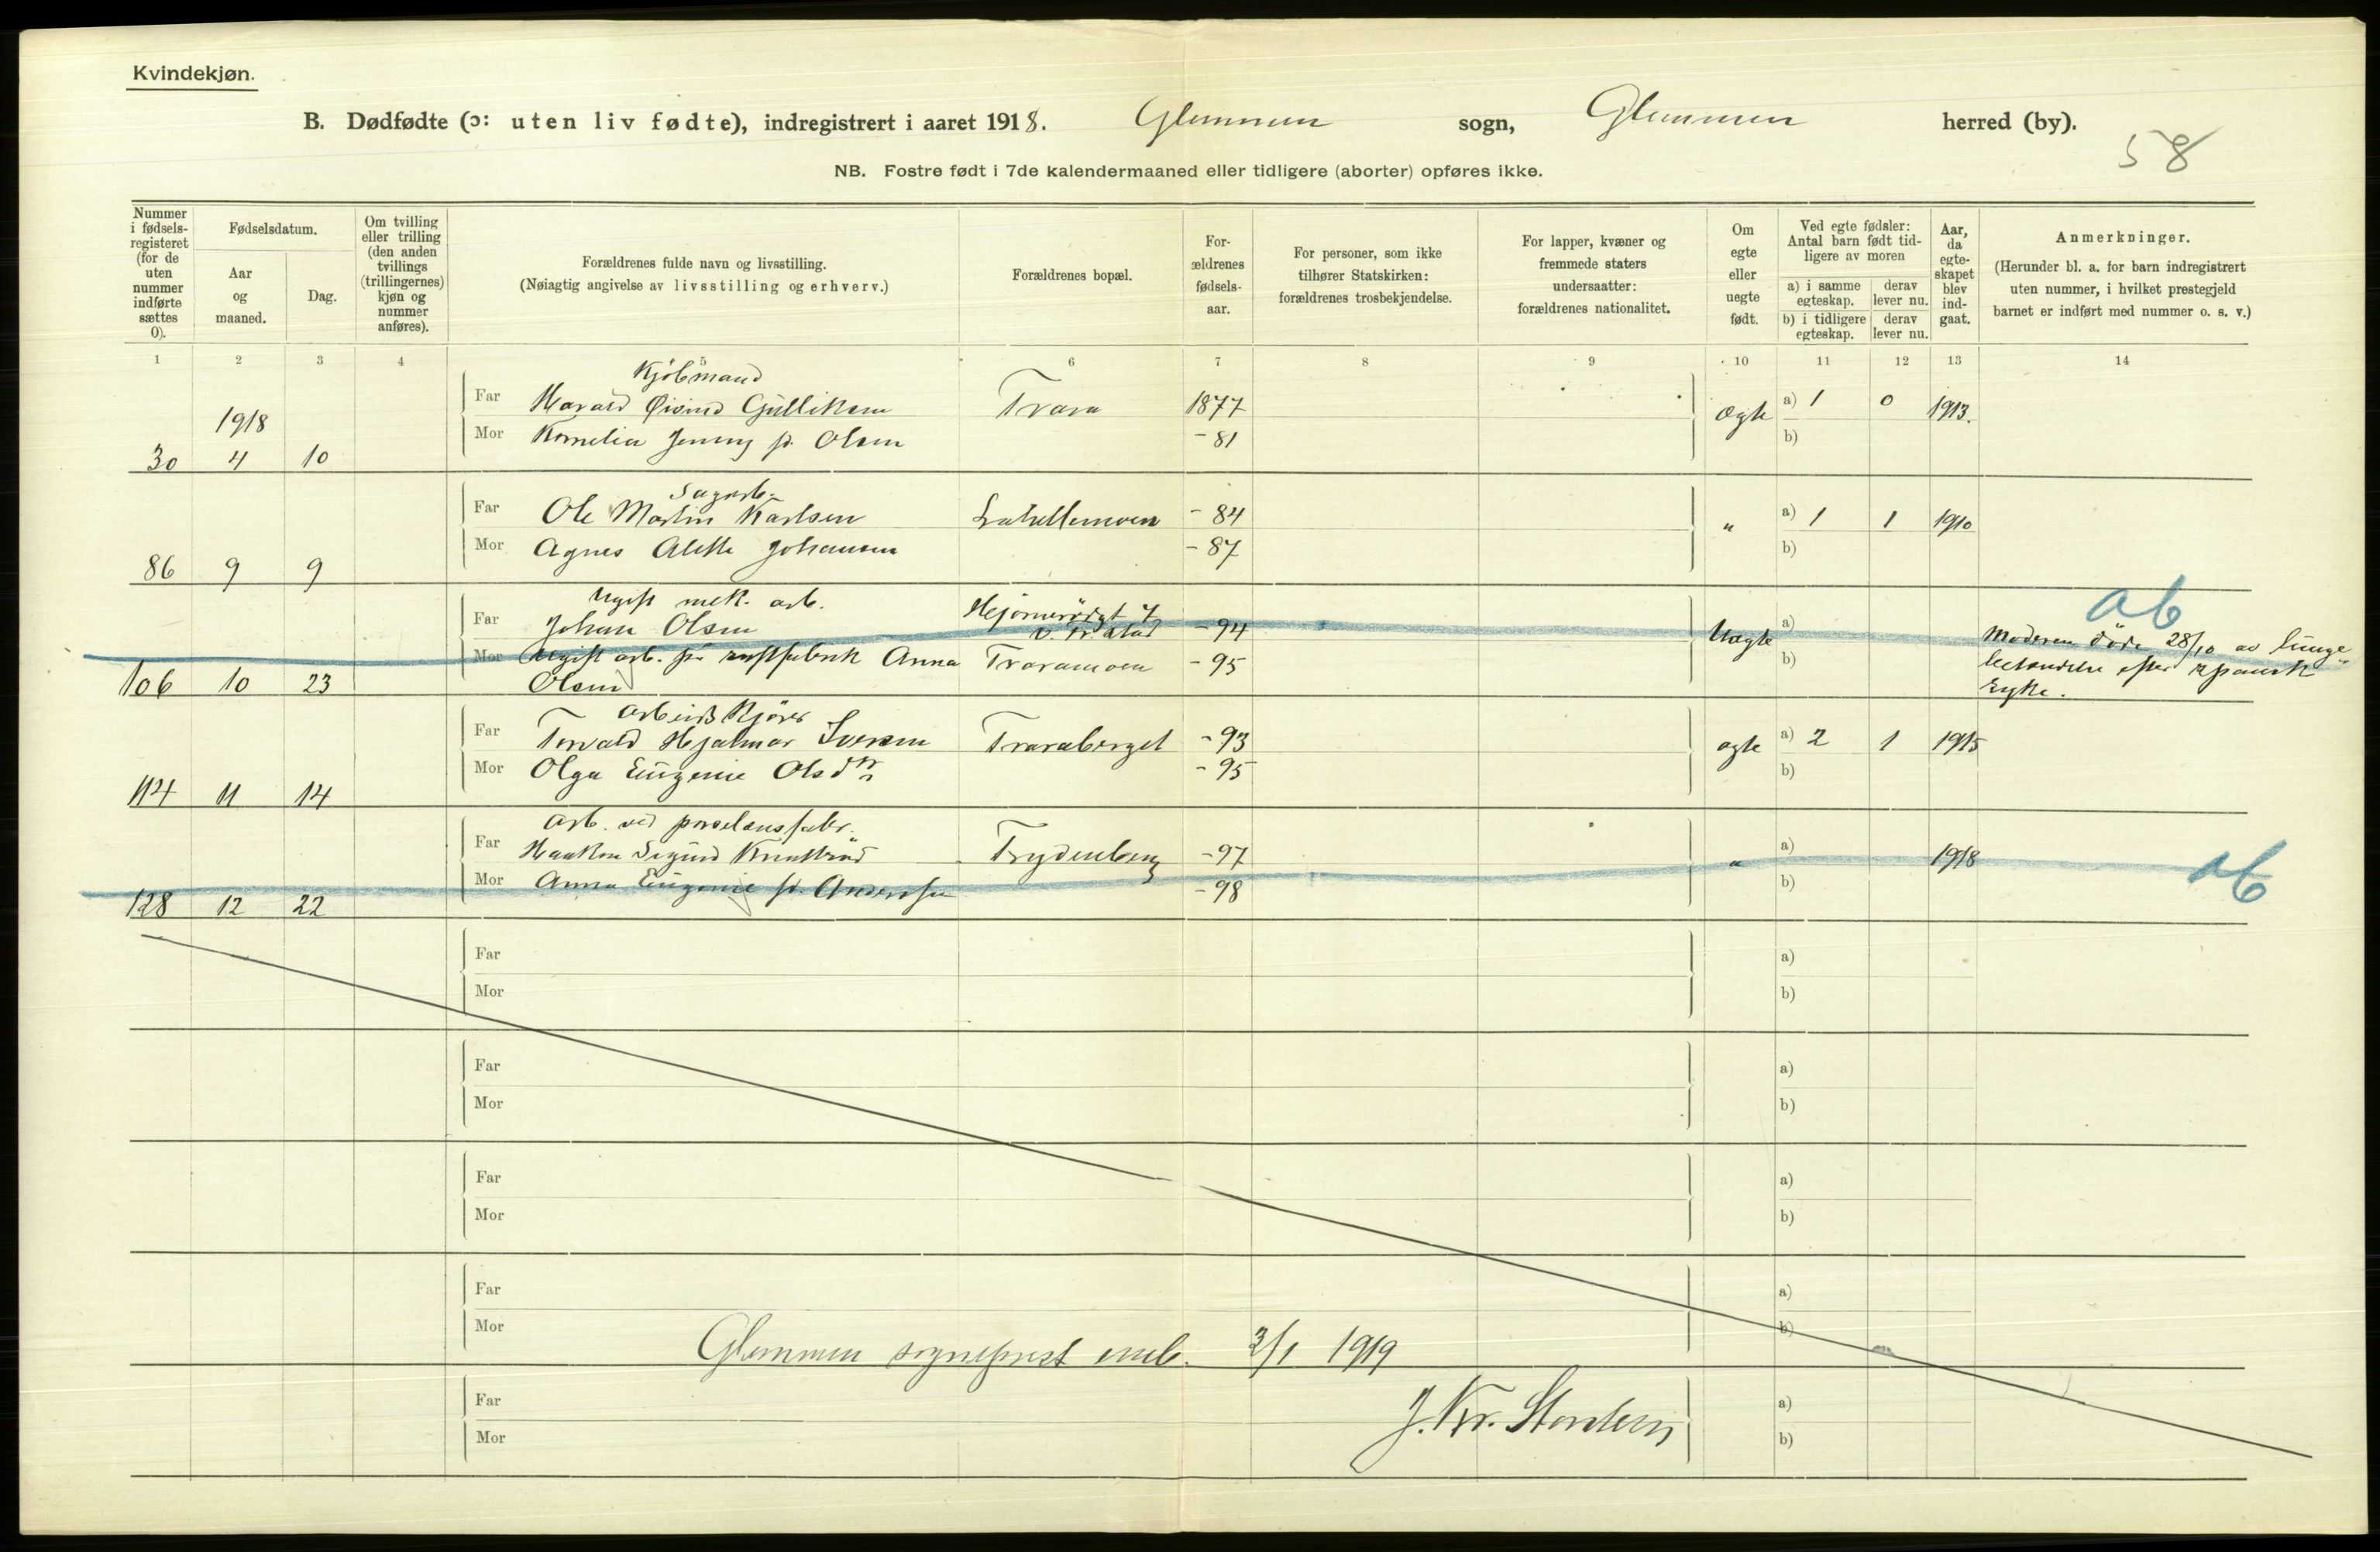 Kvindekjøn.
B. Dødfødte (ɔ: uten liv fødte), indregistrert i aaret 1918. Glemmen sogn, Glemmen herred (by).
58
NB. Fostre født i 7de kalendermaaned eller tidligere (aborter) opføres ikke.
Nummer i fødsels-registeret (for de uten nummer indførte sættes 0).
Fødselsdatum.
Aar og maaned.
Dag.
Om tvilling eller trilling (den anden tvillings (trillingernes) kjøn og nummer anføres).
Forældrenes fulde navn og livsstilling.
(Nøiagtig angivelse av livsstilling og erhverv.)
Forældrenes bopæl.
For-ældrenes fødsels-aar.
For personer, som ikke tilhører Statskirken: forældrenes trosbekjendelse.
For lapper, kvæner og fremmede staters undersaatter: forældrenes nationalitet.
Om egte eller uegte født.
Ved egte fødsler: Antal barn født tid-ligere av moren
a) i samme egteskap. derav lever nu.
b) i tidligere egteskap. derav lever nu.
Aar, da egte-skapet blev ind-gaat.
Anmerkninger.
(Herunder bl. a. for barn indregistrert uten nummer, i hvilket prestegjeld barnet er indført med nummer o. s. v.)
1 2 3 4 5 6 7 8 9 10 11 12 13 14
Kjöbmand
Far Harald Øivind Gulliksen Trara 1877 Ægte a) 1 0 1913.
1918
Mor Kornelia Jenny f. Olsen -81 b)
30 4 10
Sagarb.
Far Ole Martin Karlsen -84 " a) 1 1 1910
Mor Agnes Alette Johansen -87 b)
86 9 9
Ugift mek. arb.
ab
Far Johan Olsen -94 Uægte a)
Moderen döde 28/10 av lunge-
Mor Ugift arb. på Anna Traramoen -95 b)
betændelse efter spansk
106 10 23 Olsen
syke.
Arbeids Kjörer
Far Torvald Hjalmar Iversen Traraberget -93 ægte a) 2 1 1915
Mor Olga Eugenie Olsdtr -95 b)
114 11 14
Arb. ved porselensfabr.
Far Haakon Sigurd Trydenberg -97 " a) 1918
ab
Mor Anna Eugenie f. Andersen -98 b)
128 12 22
Far a)
Mor b)
Far a)
Mor b)
Far a)
Mor b)
Far a)
Mor b)
Glemmen sogneprest emb. 3/1 1919
Far a)
J. Kr.
Mor b)